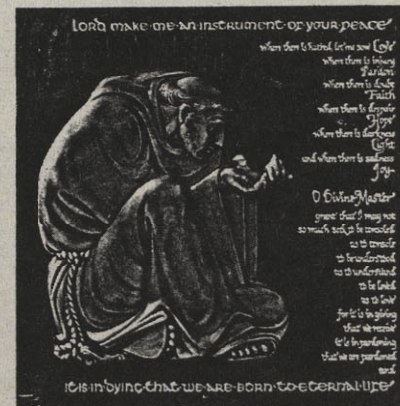 LORD MAKE·ME·AN·INSTRUMENT·OF·YOUR·PEACE
where there is hatred, let me sow Love
where there is injury
Pardon
where there is doubt
Faith
where there is despair
Hope
where there is darkness
Light
and where there is sadness
Joy
O Divine Master
grant that I may not
so much seek to be consoled
as to console
to be understood
as to understand
to be loved
as to love
for it is in giving
that we receive
it is in pardoning
that we are pardoned
and
IT·IS·IN·DYING·THAT·WE·ARE·BORN·TO·ETERNAL·LIFE